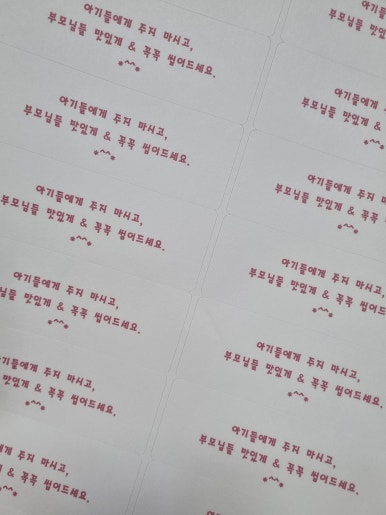 아기들에게 주지 마시고,
부모님들 맛있게 & 꼭꼭 씹어드세요.
*^^*
아기들에게 주지 마시고,
부모님들 맛있게 & 꼭꼭 씹어드세요.
*^^*
아기들에게 주지 마시고,
부모님들 맛있게 & 꼭꼭 씹어드세요.
*^^*
아기들에게 주지 마시고,
부모님들 맛있게 & 꼭꼭 씹어드세요.
*^^*
아기들에게 주지 마시고,
부모님들 맛있게 & 꼭꼭 씹어드세요.
*^^*
아기들에게 주지 마시고,
부모님들 맛있게 & 꼭꼭 씹어드세요.
*^^*
아기들에게
부모님들 맛있게 &
*^^*
아기들에게 주지
부모님들 맛있게 & 꼭
*^^*
아기들에게 주지 마
부모님들 맛있게 & 꼭꼭
*^^*
아기들에게 주지 마시고,
부모님들 맛있게 & 꼭꼭 씹어
*^^*
아기들에게 주지 마시고,
부모님들 맛있게 & 꼭꼭 씹어드세요.
*^^*
아기들에게 주지 마시고,
부모님들 맛있게 & 꼭꼭 씹어드세요.
*^^*
아기들에게 주지